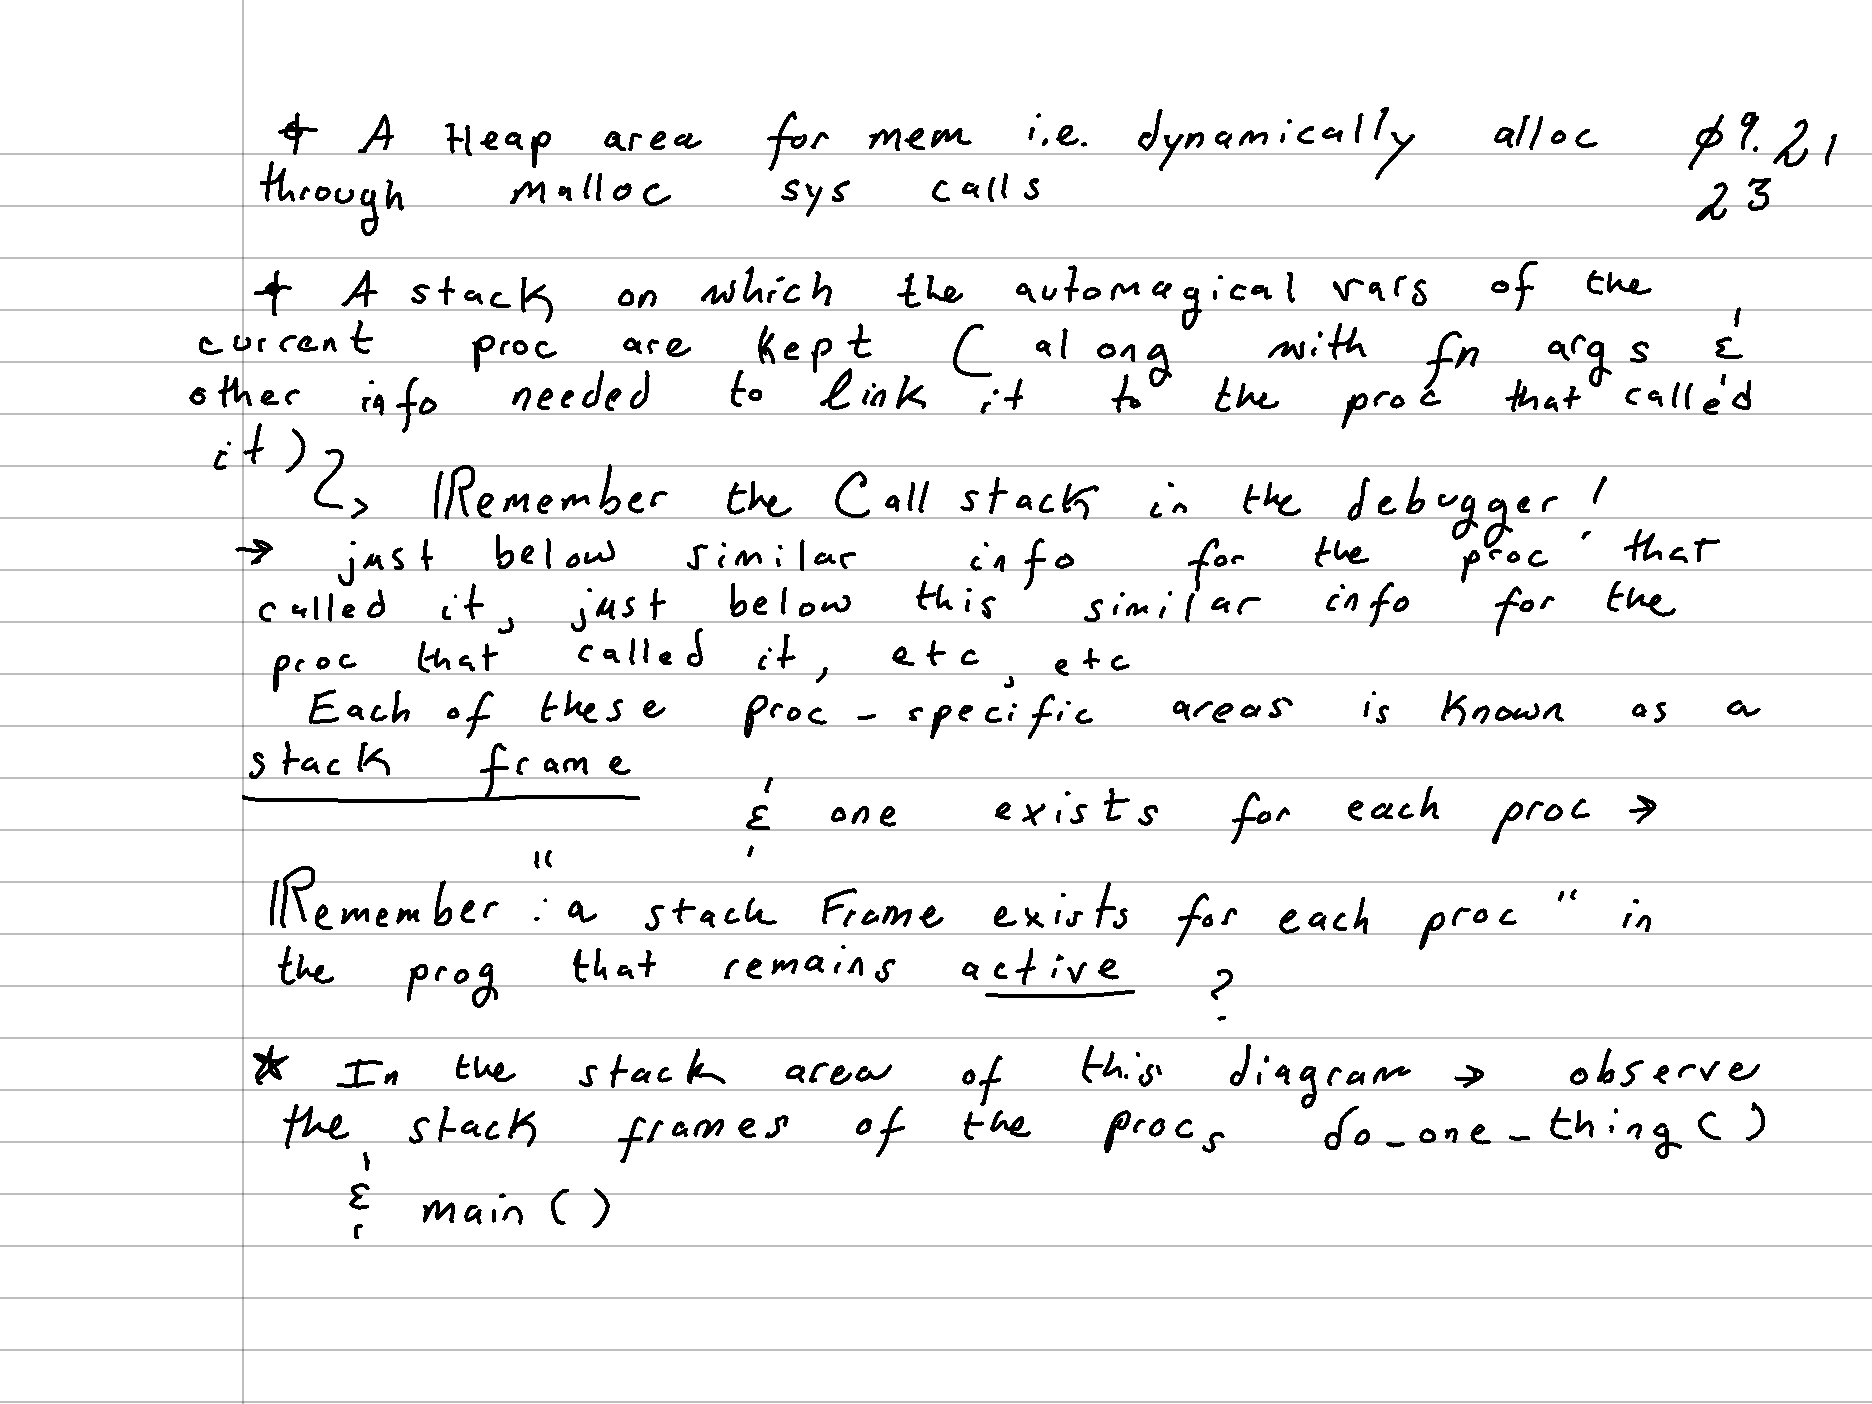 + A Heap area for mem i.e. dynamically alloc Ø9.21
through malloc sys calls 23
+ A stack on which the automagical vars of the
current proc are kept ( along with fn args &
other info needed to link it to the proc that called
it)
↳ Remember the Call stack in the debugger !
→ just below similar info for the proc that
called it, just below this similar info for the
proc that called it, etc, etc
Each of these proc - specific areas is known as a
stack frame
& one exists for each proc →
Remember : "a stack Frame exists for each proc" in
the prog that remains active ?
* In the stack area of this diagram → observe
the stack frames of the procs do_one_thing()
& main()